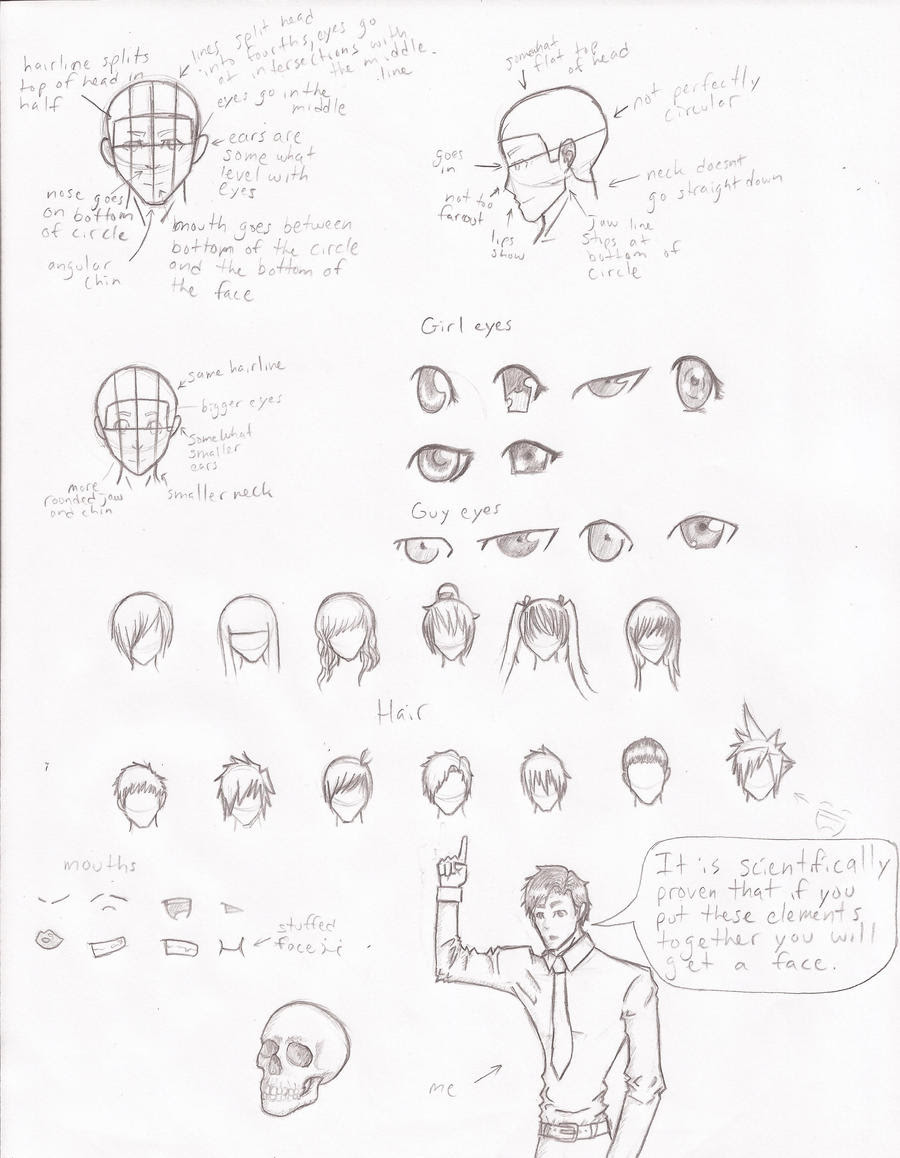 hairline splits
top of head in
half
lines split head
into fourths, eyes go
at intersections with
the middle
line.
eyes go in the
middle
ears are
some what
level with
eyes
nose goes
on bottom
of circle
angular
chin
mouth goes between
bottom of the circle
and the bottom of
the face
somewhat
flat top
of head
not perfectly
circular
goes
in
not too
far out
lips
show
neck doesnt
go straight down
jaw line
stops at
bottom of
circle
Girl eyes
same hairline
bigger eyes
somewhat
smaller
ears
more
rounded jaw
and chin
smaller neck
Guy eyes
Hair
mouths
stuffed
face
It is scientifically
proven that if you
put these elements
together you will
get a face.
me